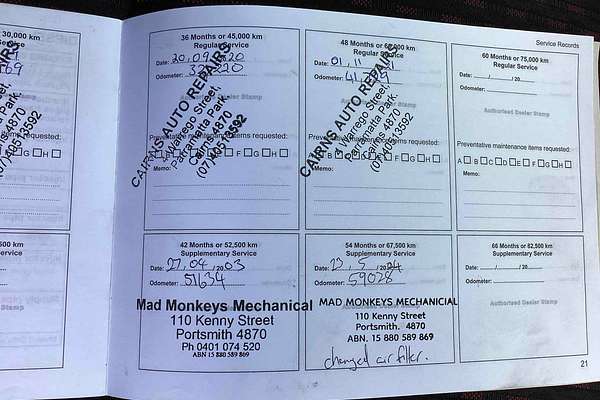 Service Records
30,000 km
Service
36 Months or 45,000 km
Regular Service
Date: 20, 09, 2020
Odometer:
CAIRNS AUTO REPAIRS
Warrego Street,
Parramatta Park.
Cairns 4870
Authorised Dealer Stamp
Preventative maintenance items requested:
F G H
Memo:
48 Months or 60,000 km
Regular Service
Date: 01, 11
Odometer: 41
CAIRNS AUTO REPAIRS
Warrego Street,
Parramatta Park.
Cairns 4870
Preventative maintenance items requested:
F G H
Memo:
60 Months or 75,000 km
Regular Service
Date: / /20
Odometer:
Authorised Dealer Stamp
Preventative maintenance items requested:
A B C D E F G H
Memo:
requested:
G H
500 km
Service
42 Months or 52,500 km
Supplementary Service
Date: 27, 04, 2003
Odometer: 51634
Mad Monkeys Mechanical
110 Kenny Street
Portsmith 4870
Ph 0401 074 520
ABN 15 880 589 869
54 Months or 67,500 km
Supplementary Service
Date: 23, 5 /2024
Odometer: 59028
MAD MONKEYS MECHANICIAL
110 Kenny Street
Portsmith. 4870
ABN. 15 880 589 869
changed air filter.
66 Months or 82,500 km
Supplementary Service
Date: / /20
Odometer:
Authorised Dealer Stamp
21